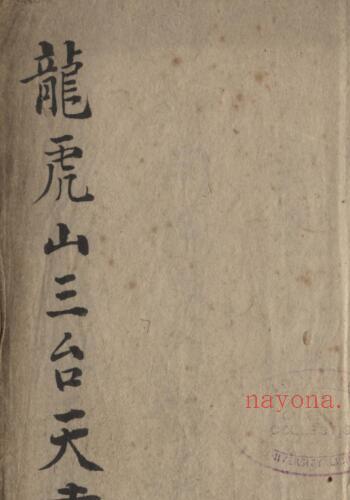 龍虎山三台天
nayona.